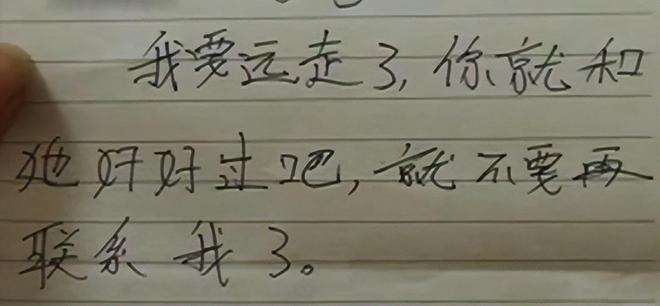 我要远走了,你就和
她好好过吧,就不要再
联系我了。